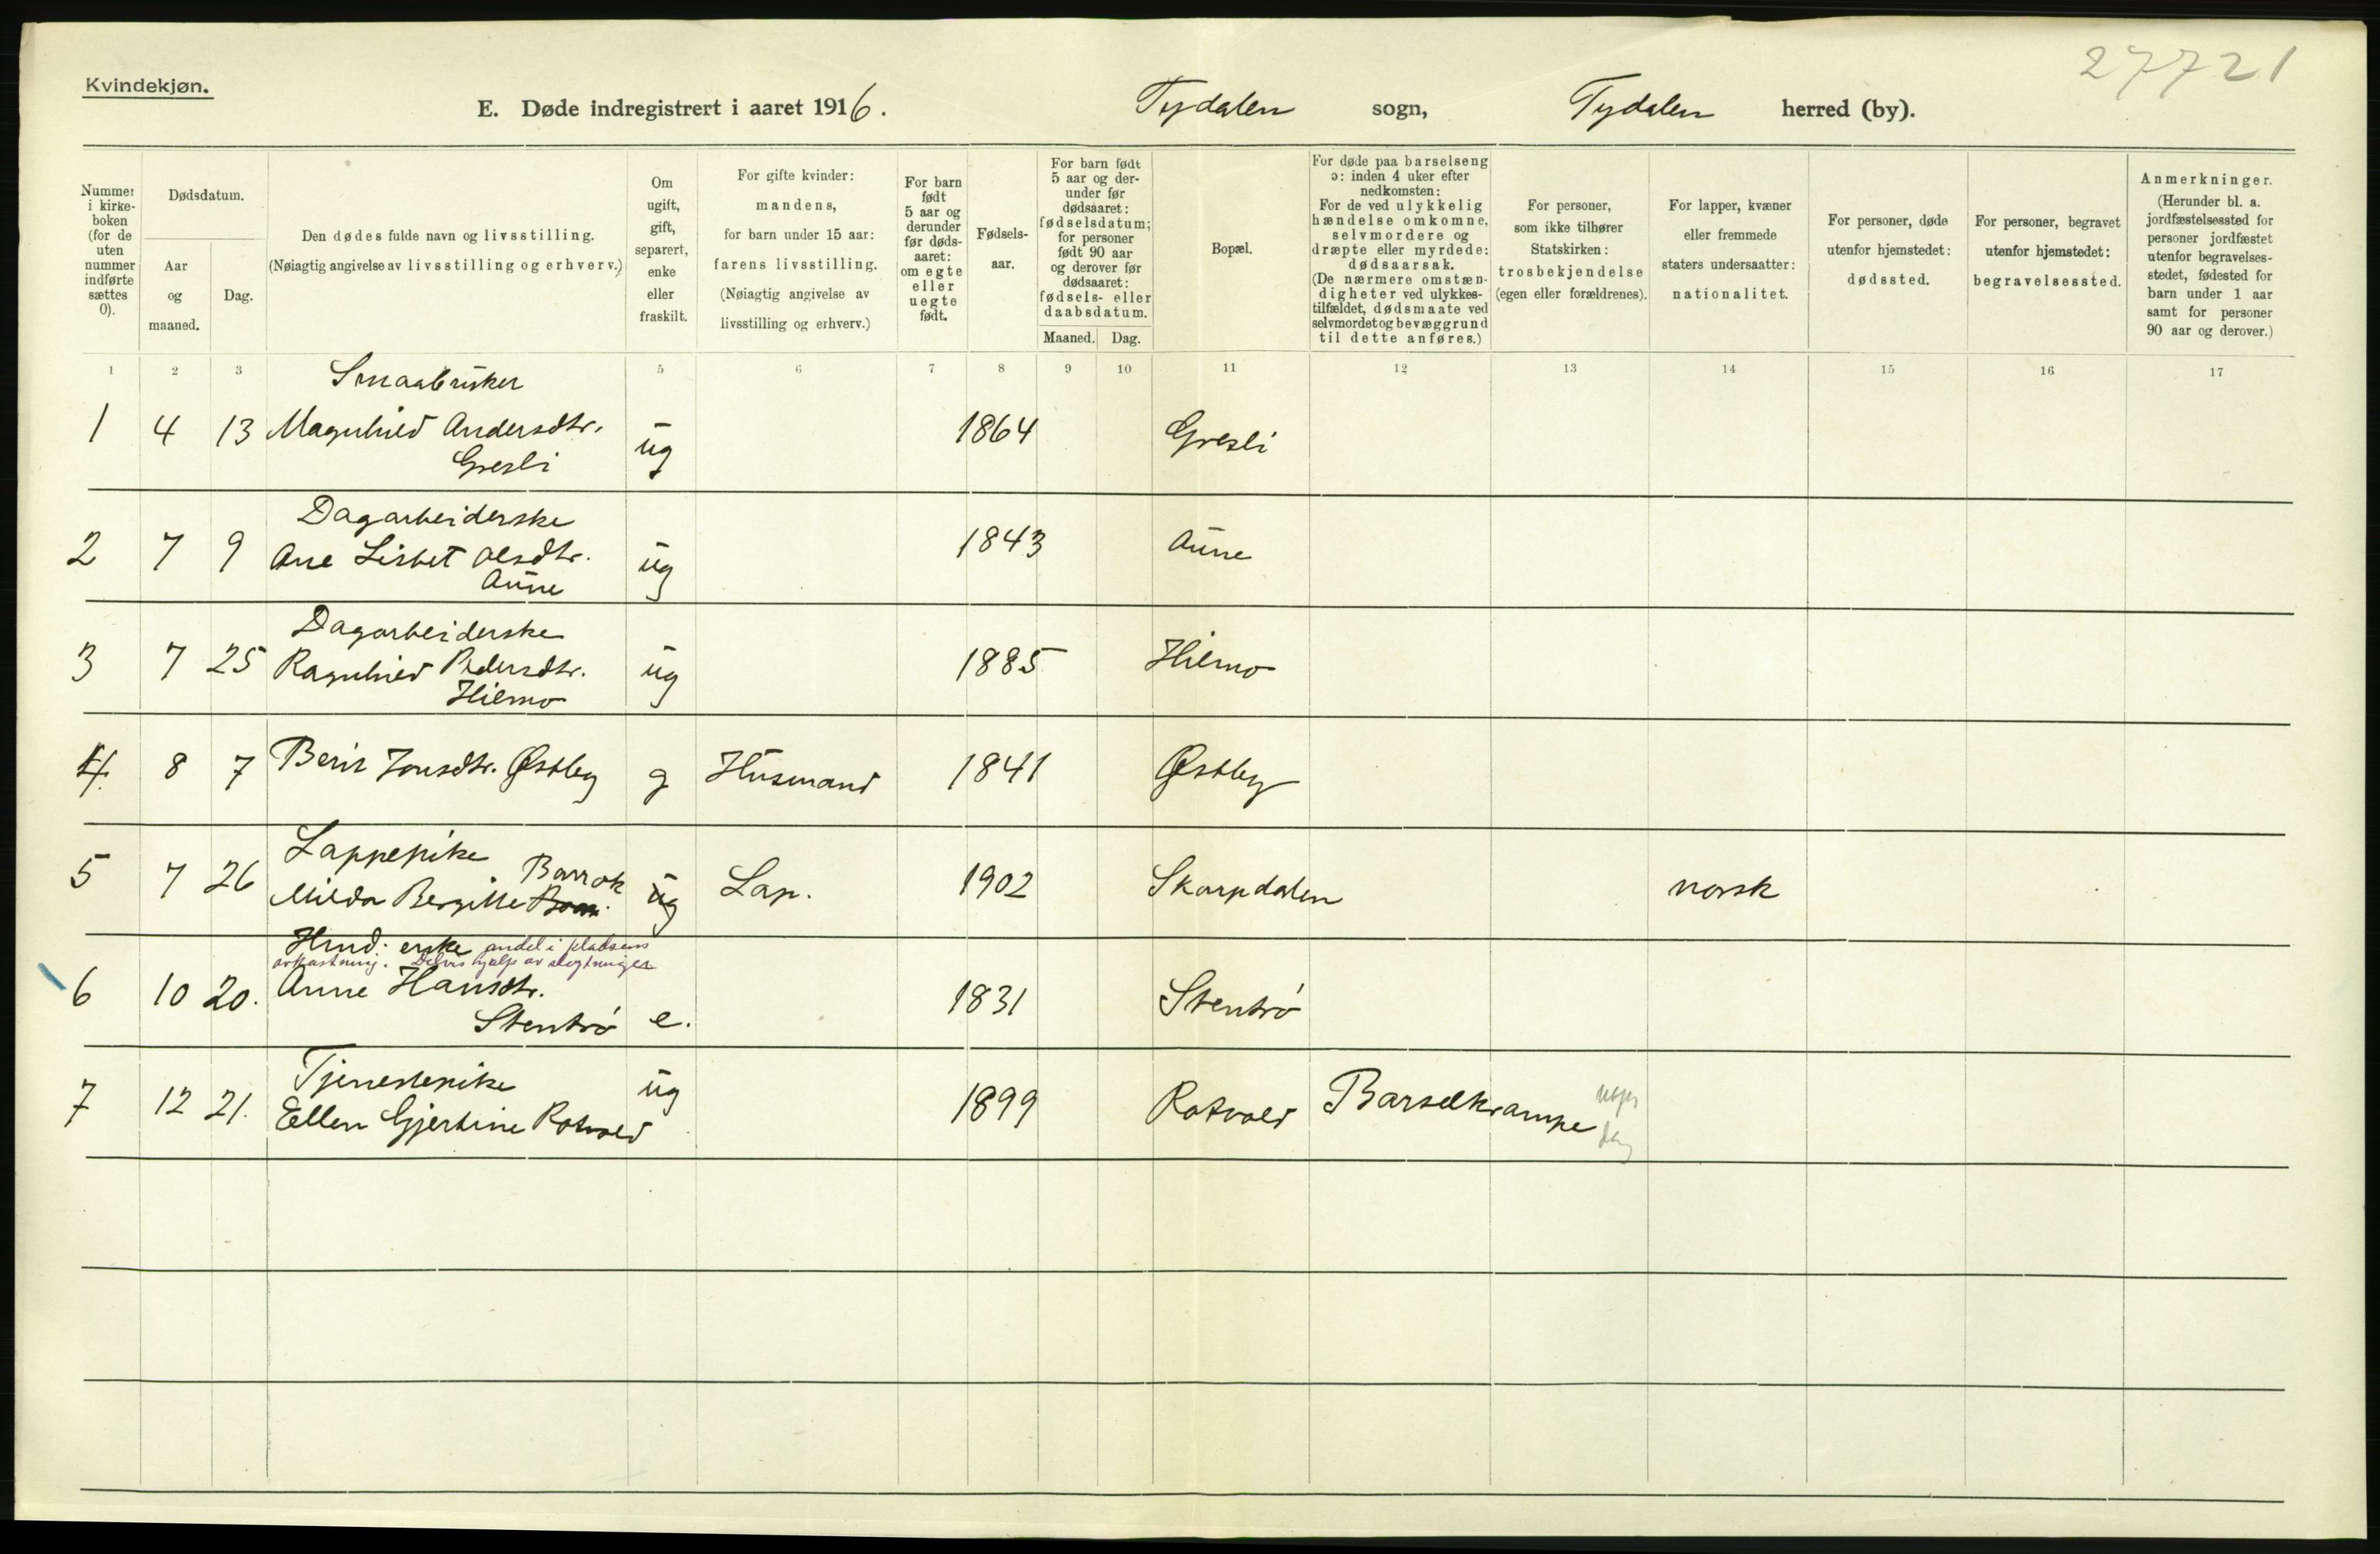 27721
Kvindekjøn.
E. Døde indregistrert i aaret 1916. Tydalen sogn, Tydalen herred (by).
Nummer i kirkeboken (for de uten nummer indførte sættes 0).
Dødsdatum.
Aar og maaned.
Dag.
Den dødes fulde navn og livsstilling.
(Nøiagtig angivelse av livsstilling og erhverv.)
Om ugift, gift, separert, enke eller fraskilt.
For gifte kvinder: mandens, for barn under 15 aar: farens livsstilling. (Nøiagtig angivelse av livsstilling og erhverv.)
For barn født 5 aar og derunder før dødsaaret: om egte eller uegte født.
Fødselsaar.
For barn født 5 aar og derunder før dødsaaret: fødselsdatum; for personer født 90 aar og derover før dødsaaret: fødsels- eller daabsdatum.
Maaned. Dag.
Bopæl.
For døde paa barselseng ɔ: inden 4 uker efter nedkomsten: For de ved ulykkelig hændelse omkomne, selvmordere og dræpte eller myrdede: dødsaarsak. (De nærmere omstændigheter ved ulykkestilfældet, dødsmaate ved selvmordet og bevæggrund til dette anføres.)
For personer, som ikke tilhører Statskirken: trosbekjendelse (egen eller forældrenes).
For lapper, kvæner eller fremmede staters undersaatter: nationalitet.
For personer, døde utenfor hjemstedet: dødssted.
For personer, begravet utenfor hjemstedet: begravelsessted.
Anmerkninger. (Herunder bl. a. jordfæstelsessted for personer jordfæstet utenfor begravelsesstedet, fødested for barn under 1 aar samt for personer 90 aar og derover.)
1 2 3 5 6 7 8 9 10 11 12 13 14 15 16 17
Smaabruker
1 4 13 Magnhild Andersdtr. ug 1864 Gresli
Gresli
Dagarbeiderske
2 7 9 Ane Lisbet Olsdtr. ug 1843 Aune
Aune
Dagarbeiderske
3 7 25 Ragnhild Pedersdtr. ug 1885 Hilmo
Hilmo
4. 8 7 Berit Jonsdtr. Østby g Husmand 1841 Østby
Lappepike
5 7 26 Milda Bergitte Barrok ug Lap. 1902 Skarpdalen norsk
Hmd. enke andel i pladsens
avkastning. Delvis hjelp av slegtninger
6 10 20. Anne Hansdtr. 1831 Stentrø
Stentrø e.
Tjenestepike ug
7 12 21. Ellen Gjertine Rotvold 1899 Rotvold Barselkrampe